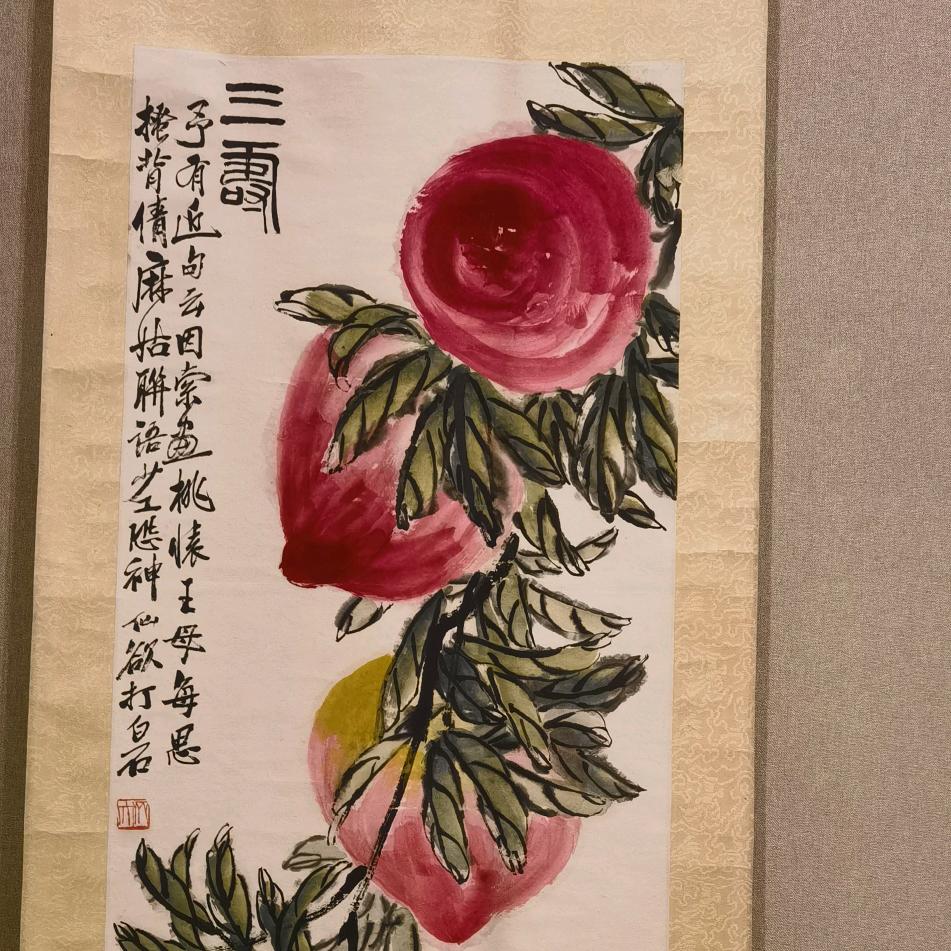 三壽
予有近句云因索畫桃懐王母每思
搔背倩麻姑聯語
神仙欲打白石